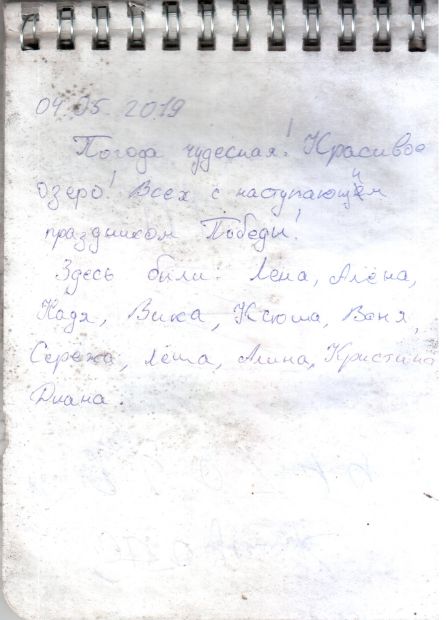 04.05.2019
Погода чудесная! Красивое
озеро! Всех с наступающим
праздником Победы!
Здесь были: Лена, Алёна,
Надя, Вика, Ксюша, Ваня,
Сережа, Лёша, Алина, Кристина
Диана.